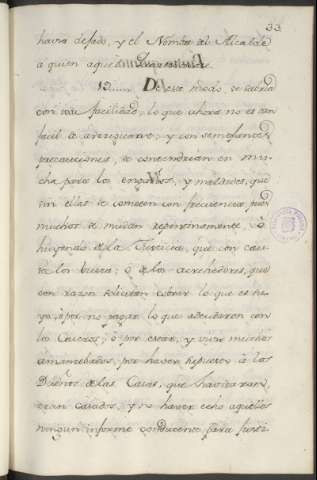 33
havia dejado, y el Nombre del Alcalde
á quien aque
12 De este modo, se sabria
con mas facilidad, lo que ahora no es tan
facil de averiguarse, y con semejantes
precauciones, se contendrian en mu-
cha parte los engaños, y maldades, que
sin ellas se cometen con frecuencia, pues
muchos se mudan repentinamente, ó
huyendo de la Justicia, que con cau-
sa los busca; ó de los acrehedores, que
con razon solicitan cobrar lo que es su-
yo, ó por no pagar lo que adeudaron con
los Caseros, ó por estar, y vivir muchos
amancebados, por haver supuesto á los
Dueños de las Casas, que havitaran,
eran casados, y no haver echo aquellos
ningun informe conducente para justi-